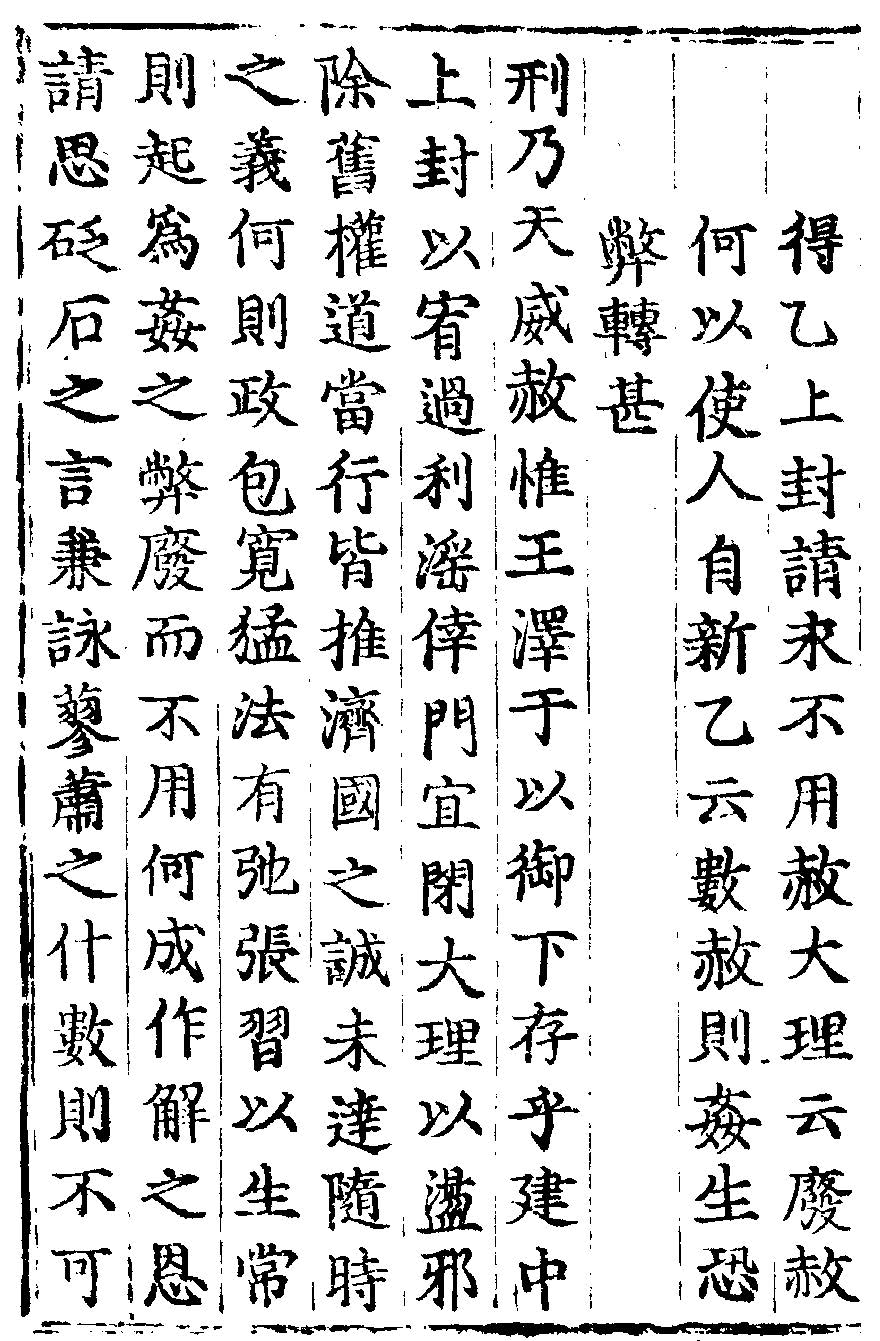 得乙上封請永不用赦大理云廢赦
何以使人自新乙云數赦則姦生恐
弊轉甚
刑乃天威赦惟王澤于以御下存乎建中
上封以宥過利淫倖門宜閉大理以盪邪
除舊權道當行皆推濟國之誠未達隨時
之義何則政包寬猛法有弛張習以生常
則起爲姦之弊廢而不用何成作解之恩
請思砭石之言兼詠蓼蕭之什數則不可